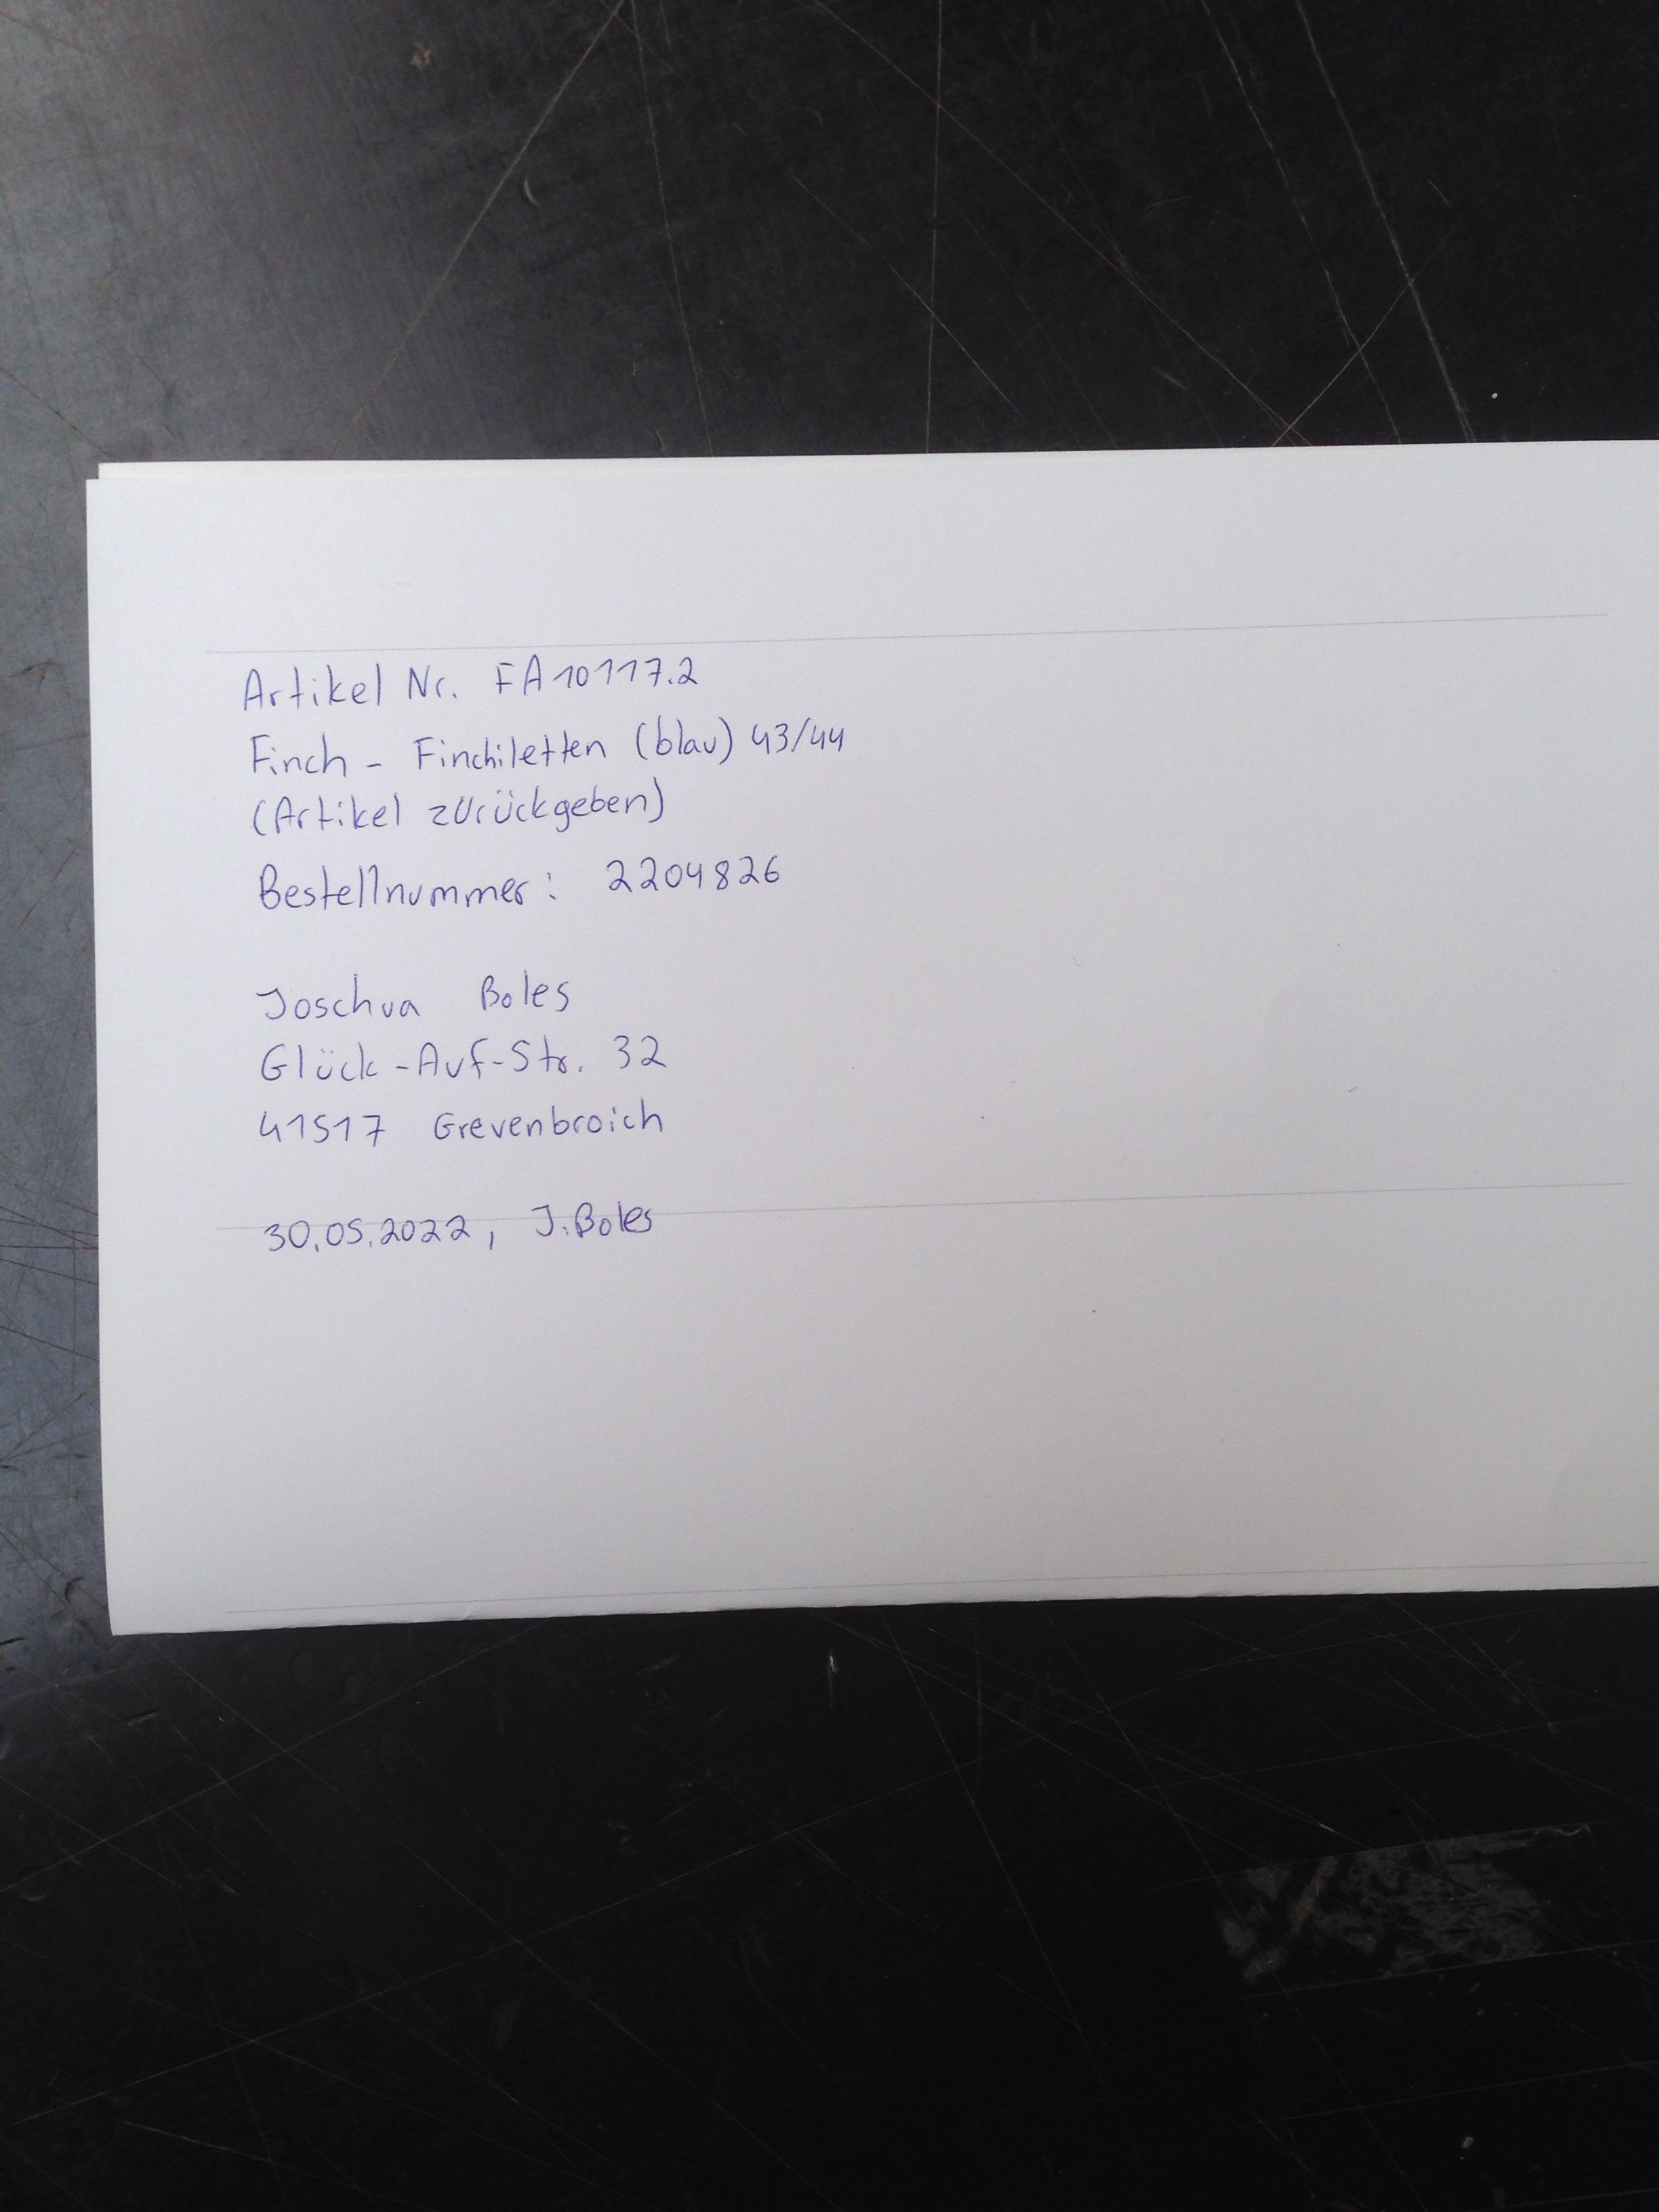 Artikel Nr. FA10117.2
Finch - Finchiletten (blau) 43/44
(Artikel zurückgeben)
Bestellnummer: 2204826
Joschua Boles
Glück-Auf-Str. 32
41517 Grevenbroich
30.05.2022, J.Boles